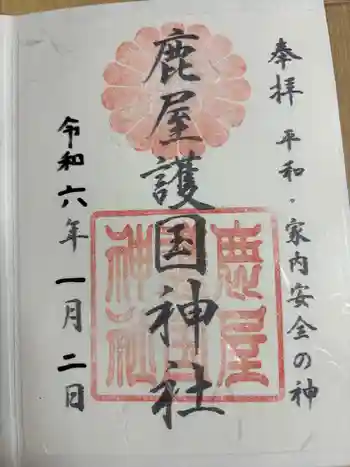 奉拝 平和・家内安全の神
鹿屋護国神社
鹿屋護国神社
令和六年一月二日